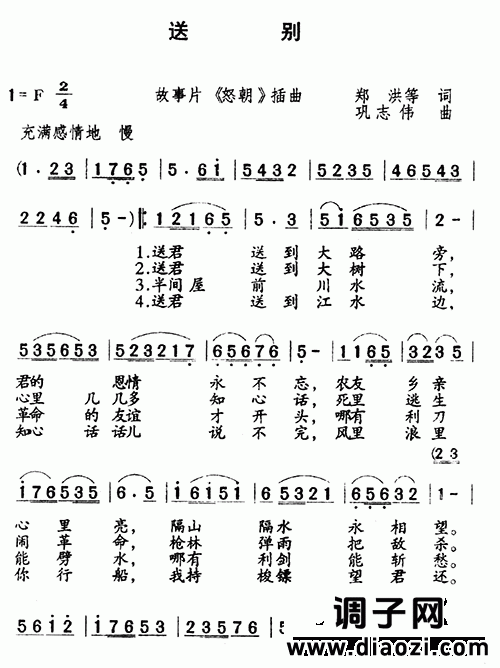 送 别
1=F 2/4
故事片《怒朝》插曲 郑洪等 词
巩志伟 曲
充满感情地 慢
(1·23|1765|5·61|5432|5235|46543|
2246|5-)‖:12165|5·3|516535|2-|
1.送君 送到大路旁,
2.送君 送到大树下,
3.半间屋 前川水流,
4.送君 送到江水边,
535653|5523217|65676|5-|1165|3235|
君的 恩情 永不忘,农友乡亲
心里 几几多 知心话,死里逃生
革命 的友谊 才开头,哪有利刀
知心 话话儿 说不完,风里浪里
(23
176535|6·5|16151|6532|65632|1-|
心里亮,隔山隔水永相望。
闹革命,枪林弹雨把敌杀。
能劈水,哪有利剑能斩愁。
你行船,我持梭镖望君还。
5612|1765|3523|23576|5
调子网
www.diaozi.com